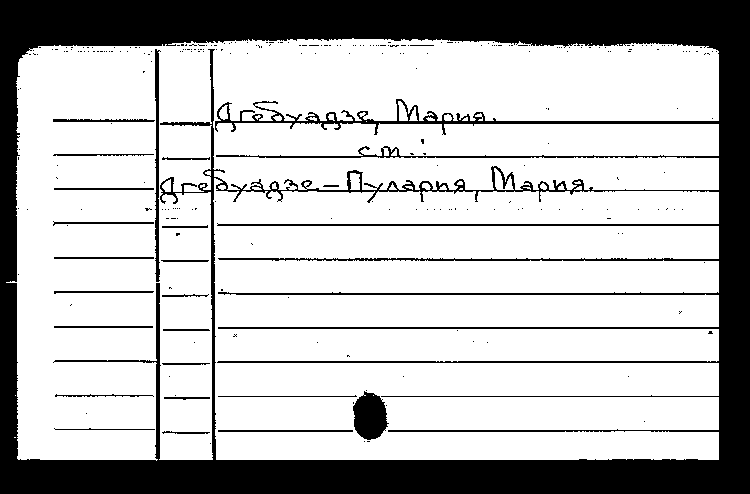 Дгебуадзе, Мария.
см.:
Дгебуадзе-Пулария, Мария.